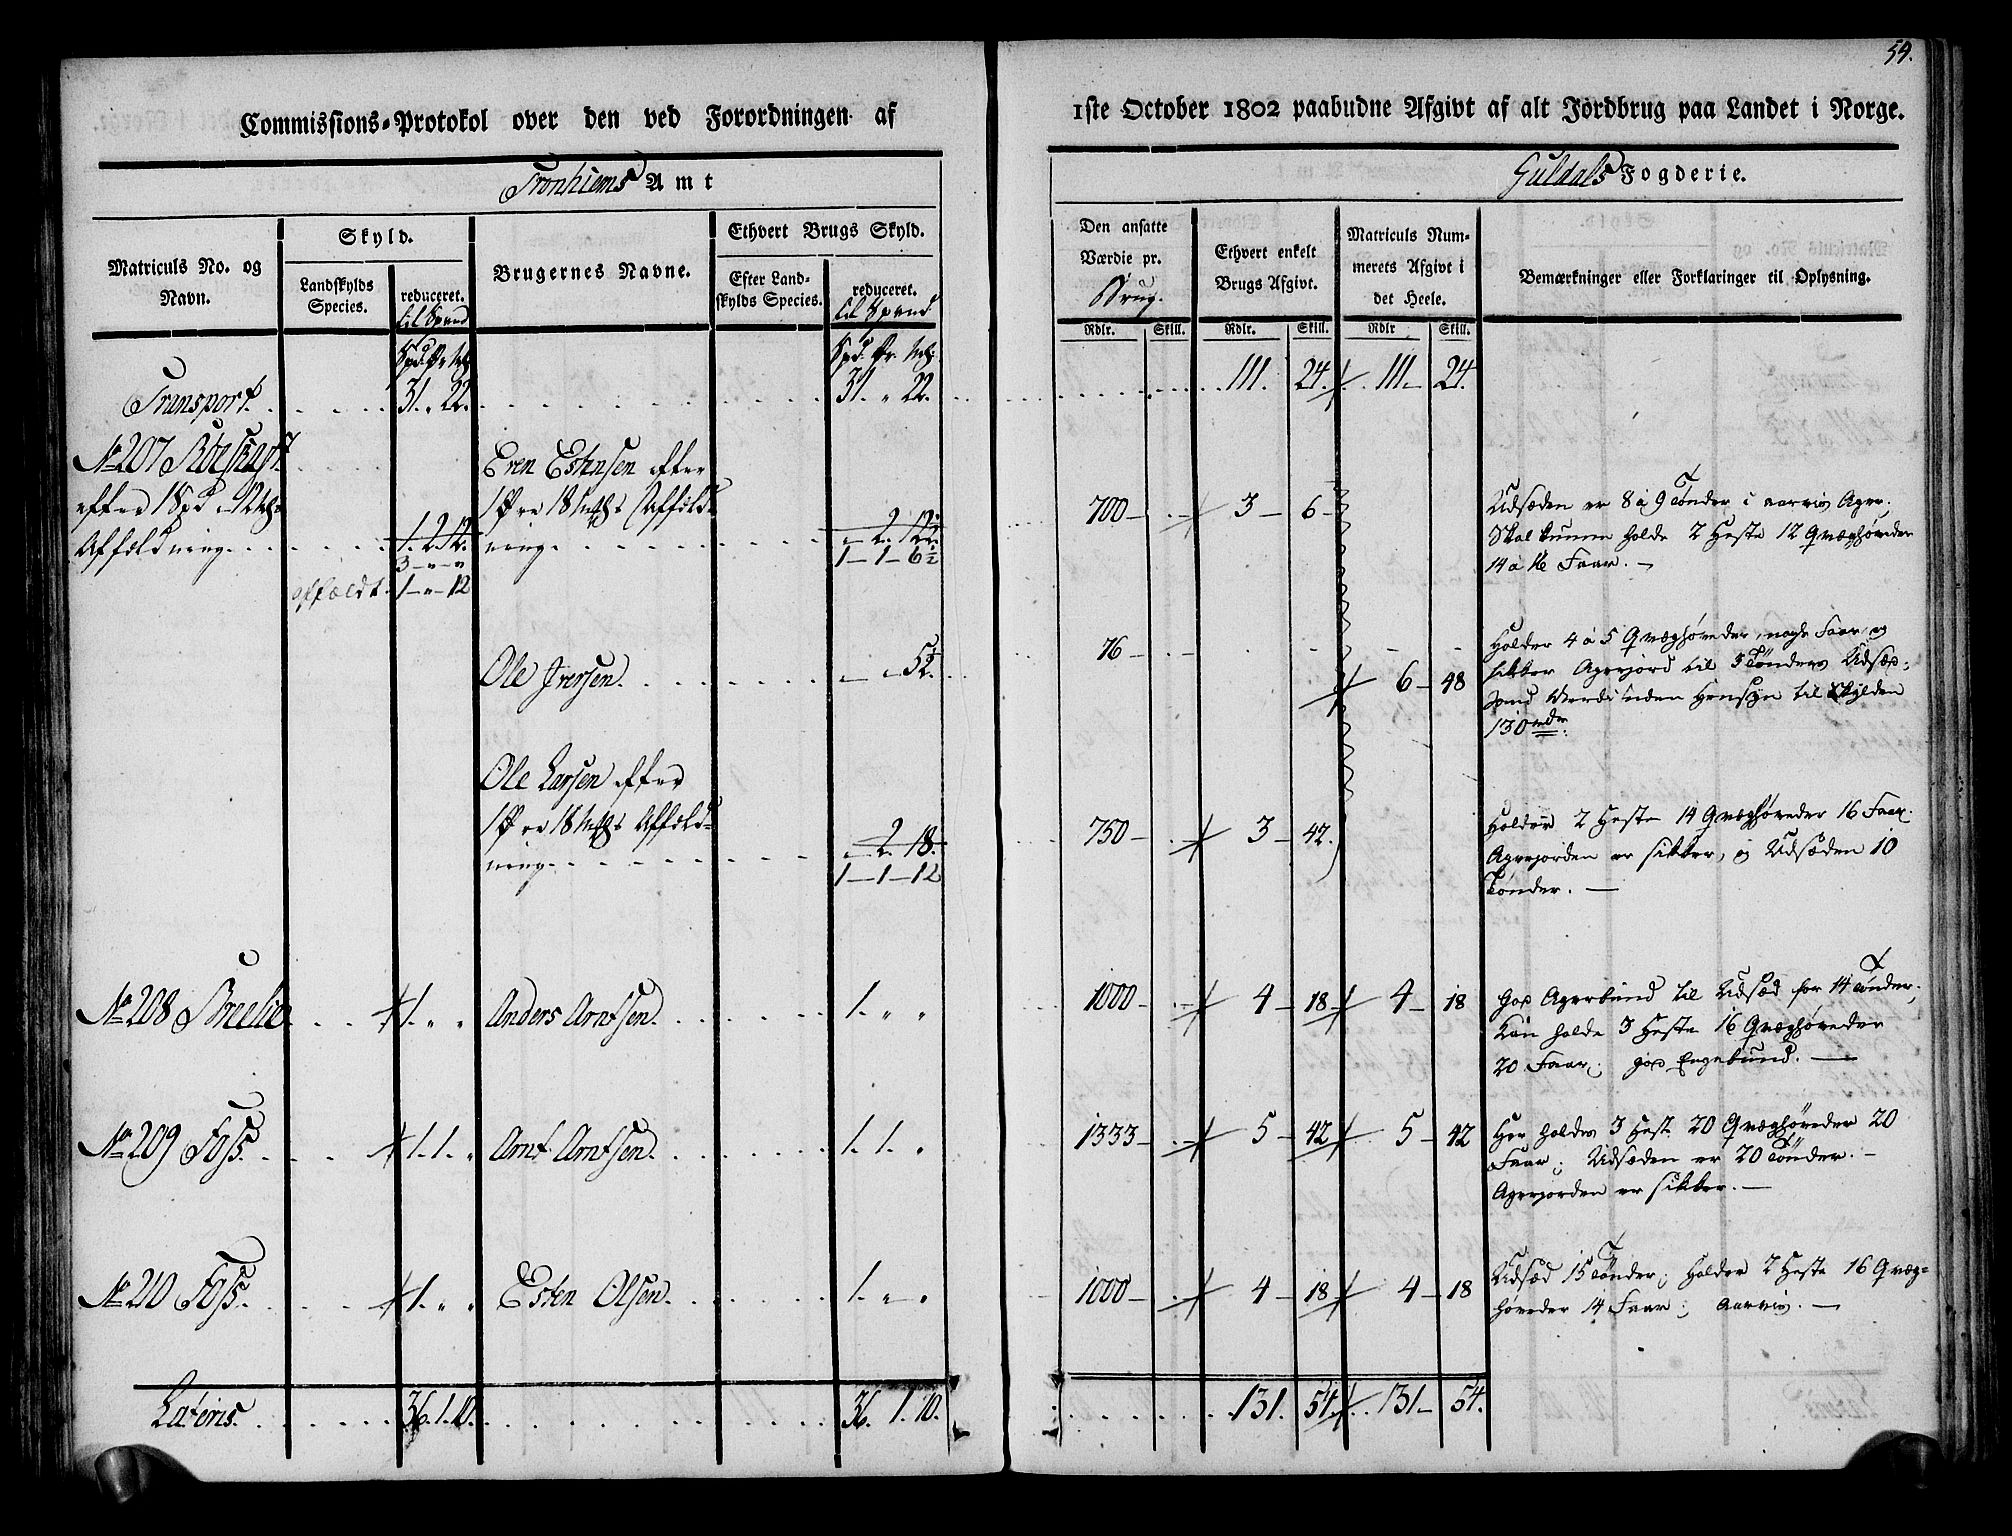 54.
Commissions-Protokol over den ved Forordningen af
1ste October 1802 paabudne Afgivt af alt Jordbrug paa Landet i Norge.
Tronhiems Amt
Guldals Fogderie.
Matriculs No. og Navn.
Skyld.
Landskylds Species.
reduceret. til Spand
Brugernes Navne.
Ethvert Brugs Skyld.
Efter Landskylds Species.
reduceret. til Spand
Den ansatte Værdie pr. Brug.
Ethvert enkelt Brugs Afgivt.
Matriculs Nummerets Afgivt i det Heele.
Bemærkninger eller Forklaringer til Oplysning.
Rdlr. Skill. Rdlr. Skill. Rdlr Skill.
Transport. 31. „ 22. 31. „ 22. 111. 24. 111. 24.
No 207
efter 1 Spd „ 12
Affældning. 1. 2. 12.
3 - „ - „
affældt 1 - „ - 12
Even Estensen efter
1 18 Affæld-
ning. 2. 12½.
1 - 1 - 6½
700 3 6
Udsæden er 8 a 9 Tønder i aarvis Ager.
Skal kunne holde 2 Heste 12 Qvæghøveder
14 a 16 Faar. —
Ole Iversen. „ 5½.
76 6 48
Holder 4 a 5 Qvæghøveder, nogle Faar, og
sikker Agerjord til 5 Tønders Udsæd;
uden Hensyn til Skylden
130 rdr.
Ole Larsen efter
1 18 Affæld-
ning. 2. 18.
1 - 1 - 12
750 3 42.
Holder 2 Heste 14 Qvæghøveder 16 Faar.
Agerjorden er sikker, og Udsæden 10
Tønder. —
No 208 Breelie 1. „ „ Anders Arntsen. 1. „ „ 1000 4 18 4 18
god Agerbund til Udsæd for 14 Tønder,
kan holde 3 Heste 16 Qvæghøveder
20 Faar; god Engebund. —
No 209 Foss. 1. 1. „ Arnt Arntsen. 1. 1. „ 1333 5 42 5 42
Her holdes 3 Hest. 20 Qvæghøveder 20
Faar; Udsæden er 20 Tønder. —
Agerjorden er sikker. —
No 210 Foss. 1. „ „ Esten Olsen. 1. „ „ 1000 4 18 4 18
Udsæd 15 Tønder; Holder 2 Heste 16 Qvæg-
høveder 14 Faar; aarvis. —
Lateris. 36. 1. 10. 36. 1. 10. 131. 54. 131 54.